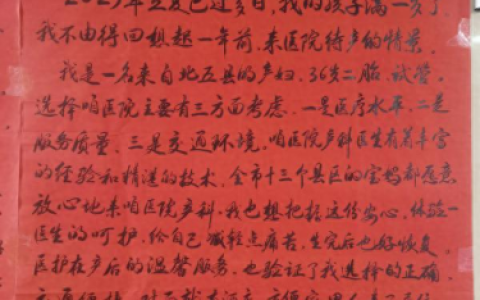 2025年立夏已过多日,我的孩子满一岁了
我不由得回想起一年前,来医院待产的情景,
我是一名来自北五县的产妇,36岁二胎,试管,
选择咱医院主要有三方面考虑.一是医疗水平,二是
服务质量,三是交通环境,咱医院产科医生有着丰富
的经验和精湛的技术,全市十三个县区的宝妈都愿意
放心地来咱医院产科.我也想把握这份安心,体验一
医生的呵护,给自己减轻点痛苦,生完后也好恢复,
医护在产后的温馨服务,也验证了我选择的正确.